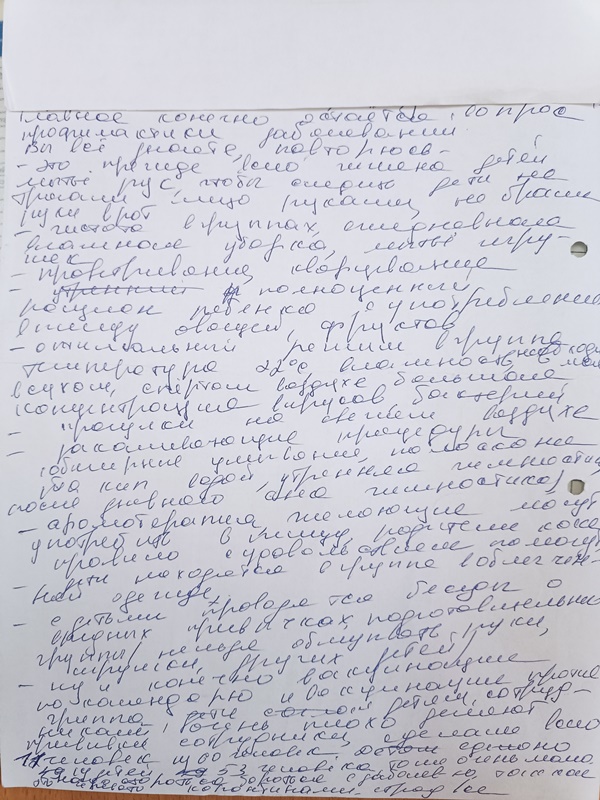 Главное конечно остаётся вопрос
профилактики заболевании
Вы всё знаете, повторюсь -
- это прежде всего гигиена детей
мытьё рук, чтобы следить дети не
трогали лицо руками, не брали
руки в рот
- чистота в группах, ежедневная
влажная уборка, мытьё игру-
шек
- проветривание, кварцевание
- утренний полноценный
рацион ребёнка с употреблением
в пищу овощей, фруктов
- оптимальный режим в группа
температура 22°С, влажность,
в сухом, спёртом воздухе большая
концентрация вирусов бактерий
- прогулки на свежем воздухе
- закаливающие процедуры
(обширные умывание, полоскание
водой, утренняя гимнастика,
после дневного сна гимностика)
- аромотерапия, желающие могут
употребить в пищу, родители как
правило с удовольствием помогут
- дети находятся в группа в облегчен-
ной одежде,
- с детьми проводятся беседы о
вредных привычках, подготовительны
группы, нельзя облизывать руки,
игрушки, других детей,
- ну и конечно вакцинация
по календарю и вакцинация против
гриппа дети согласи детей, сотруд-
никами, очень плохо делают
прививки сотрудники, сделали всего
11 человек из 60 человек,
детей 53 человека тоже очень мало